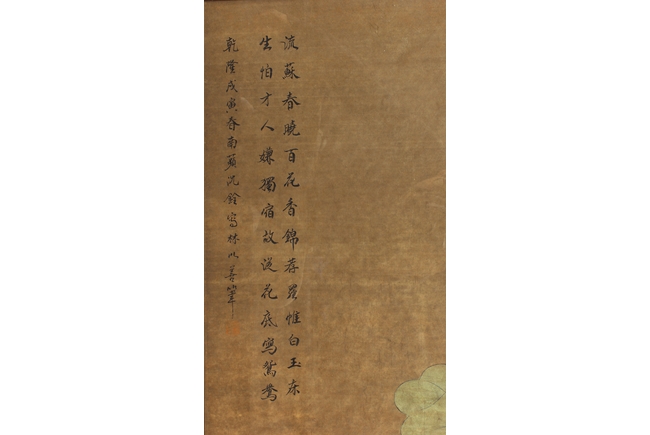 流蘇春曉百花香錦荐羅惟白玉床
生怕才人嫌獨宿故從花底寫鴛鴦
乾隆戊寅春南蘋沈銓寫林以善筆